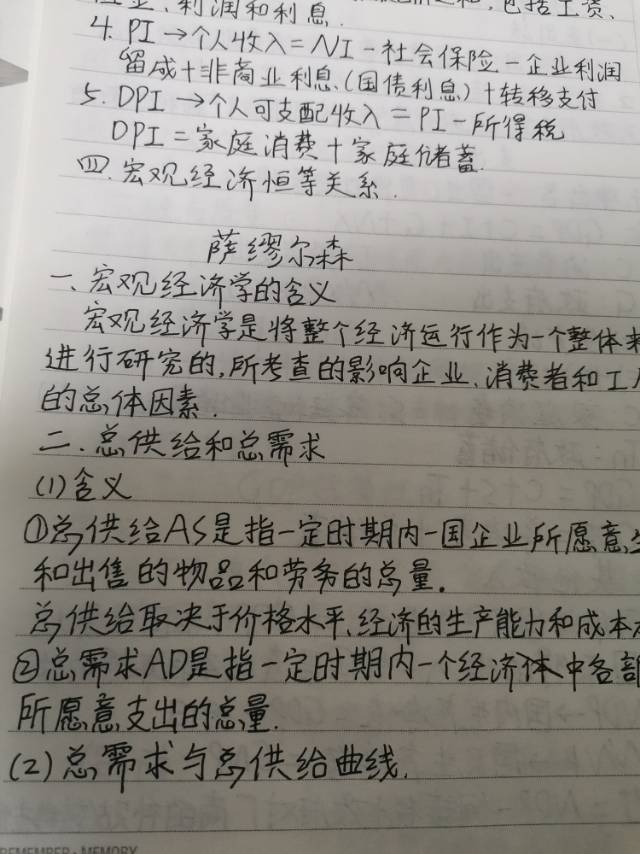 、利润和利息.
4. PI→个人收入=NI-社会保险-企业利润
留成+非商业利息(国债利息)+转移支付
5. DPI→个人可支配收入=PI-所得税
DPI=家庭消费+家庭储蓄.
四.宏观经济恒等关系.
萨缪尔森
一、宏观经济学的含义
宏观经济学是将整个经济运行作为一个整体来
进行研究的,所考查的影响企业、消费者和工人
的总体因素.
二.总供给和总需求
(1)含义
①总供给AS是指一定时期内一国企业所愿意
和出售的物品和劳务的总量.
总供给取决于价格水平、经济的生产能力和成本
②总需求AD是指一定时期内一个经济体中各部
所愿意支出的总量.
(2)总需求与总供给曲线.
REMEMBER·MEMORY